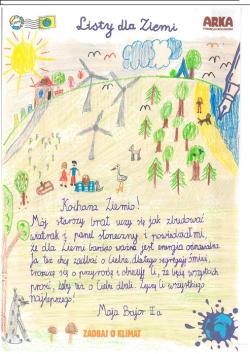 Listy dla Ziemi
ARKA
Kochana Ziemio!
Mój starszy brat uczy się jak zbudować
wiatrak i panel słoneczny i powiedział mi,
że dla Ziemi bardzo ważna jest energia odnawialna.
Ja też chcę zadbać o Ciebie, dlatego segreguję śmieci,
troszczę się o przyrodę i obiecuję Ci, że uczę wszystkich
prosić, żeby też o Ciebie dbali. Życzę Ci wszystkiego
najlepszego!
Maja Bajor IIa
ZADBAJ O KLIMAT